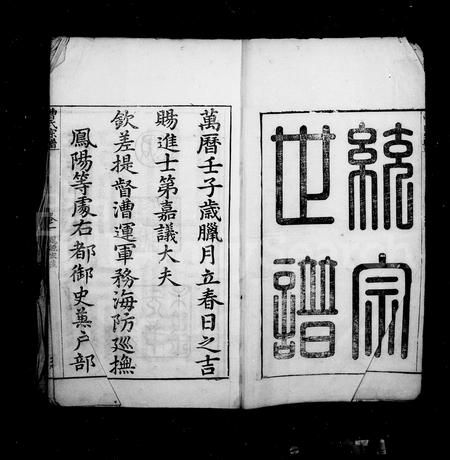 統宗
世譜
萬曆壬子歲臘月立春日之吉
賜進士第嘉議大夫
欽差提督漕運軍務海防巡撫
鳳陽等處右都御史兼戶部